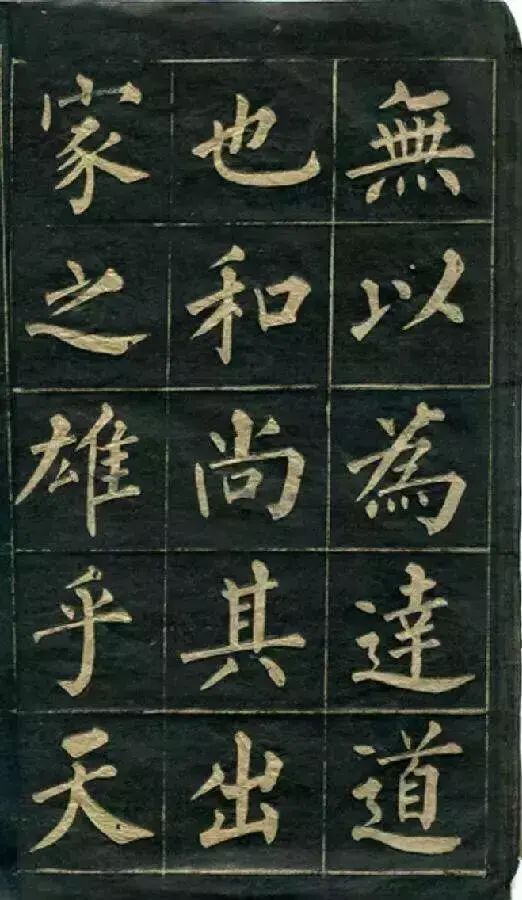 無以為達道
也和尚其出
家之雄乎天